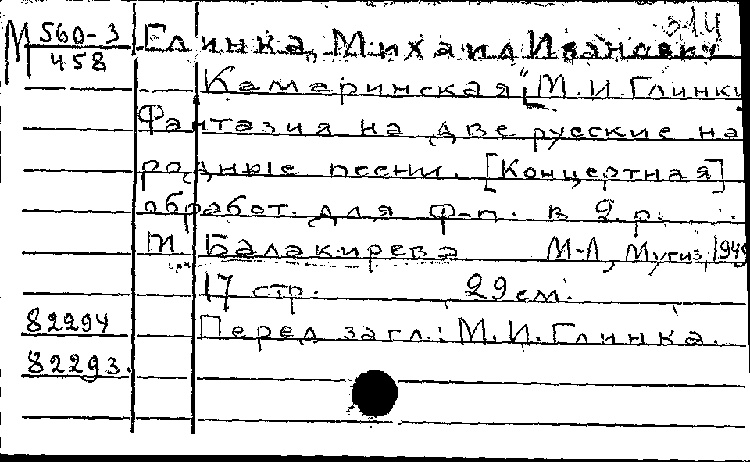 314
М 560-3 Глинка, Михаил Иванович
458
"Камаринская" [М.И. Глинки
Фантазия на две русские на
родные песни. [Концертная]
обработ. для ф-п. в 2 р.
М. Балакирева М-Л, Музгиз, 1949
17 стр. 29 см.
82294 Перед загл.: М.И. Глинка.
82293.